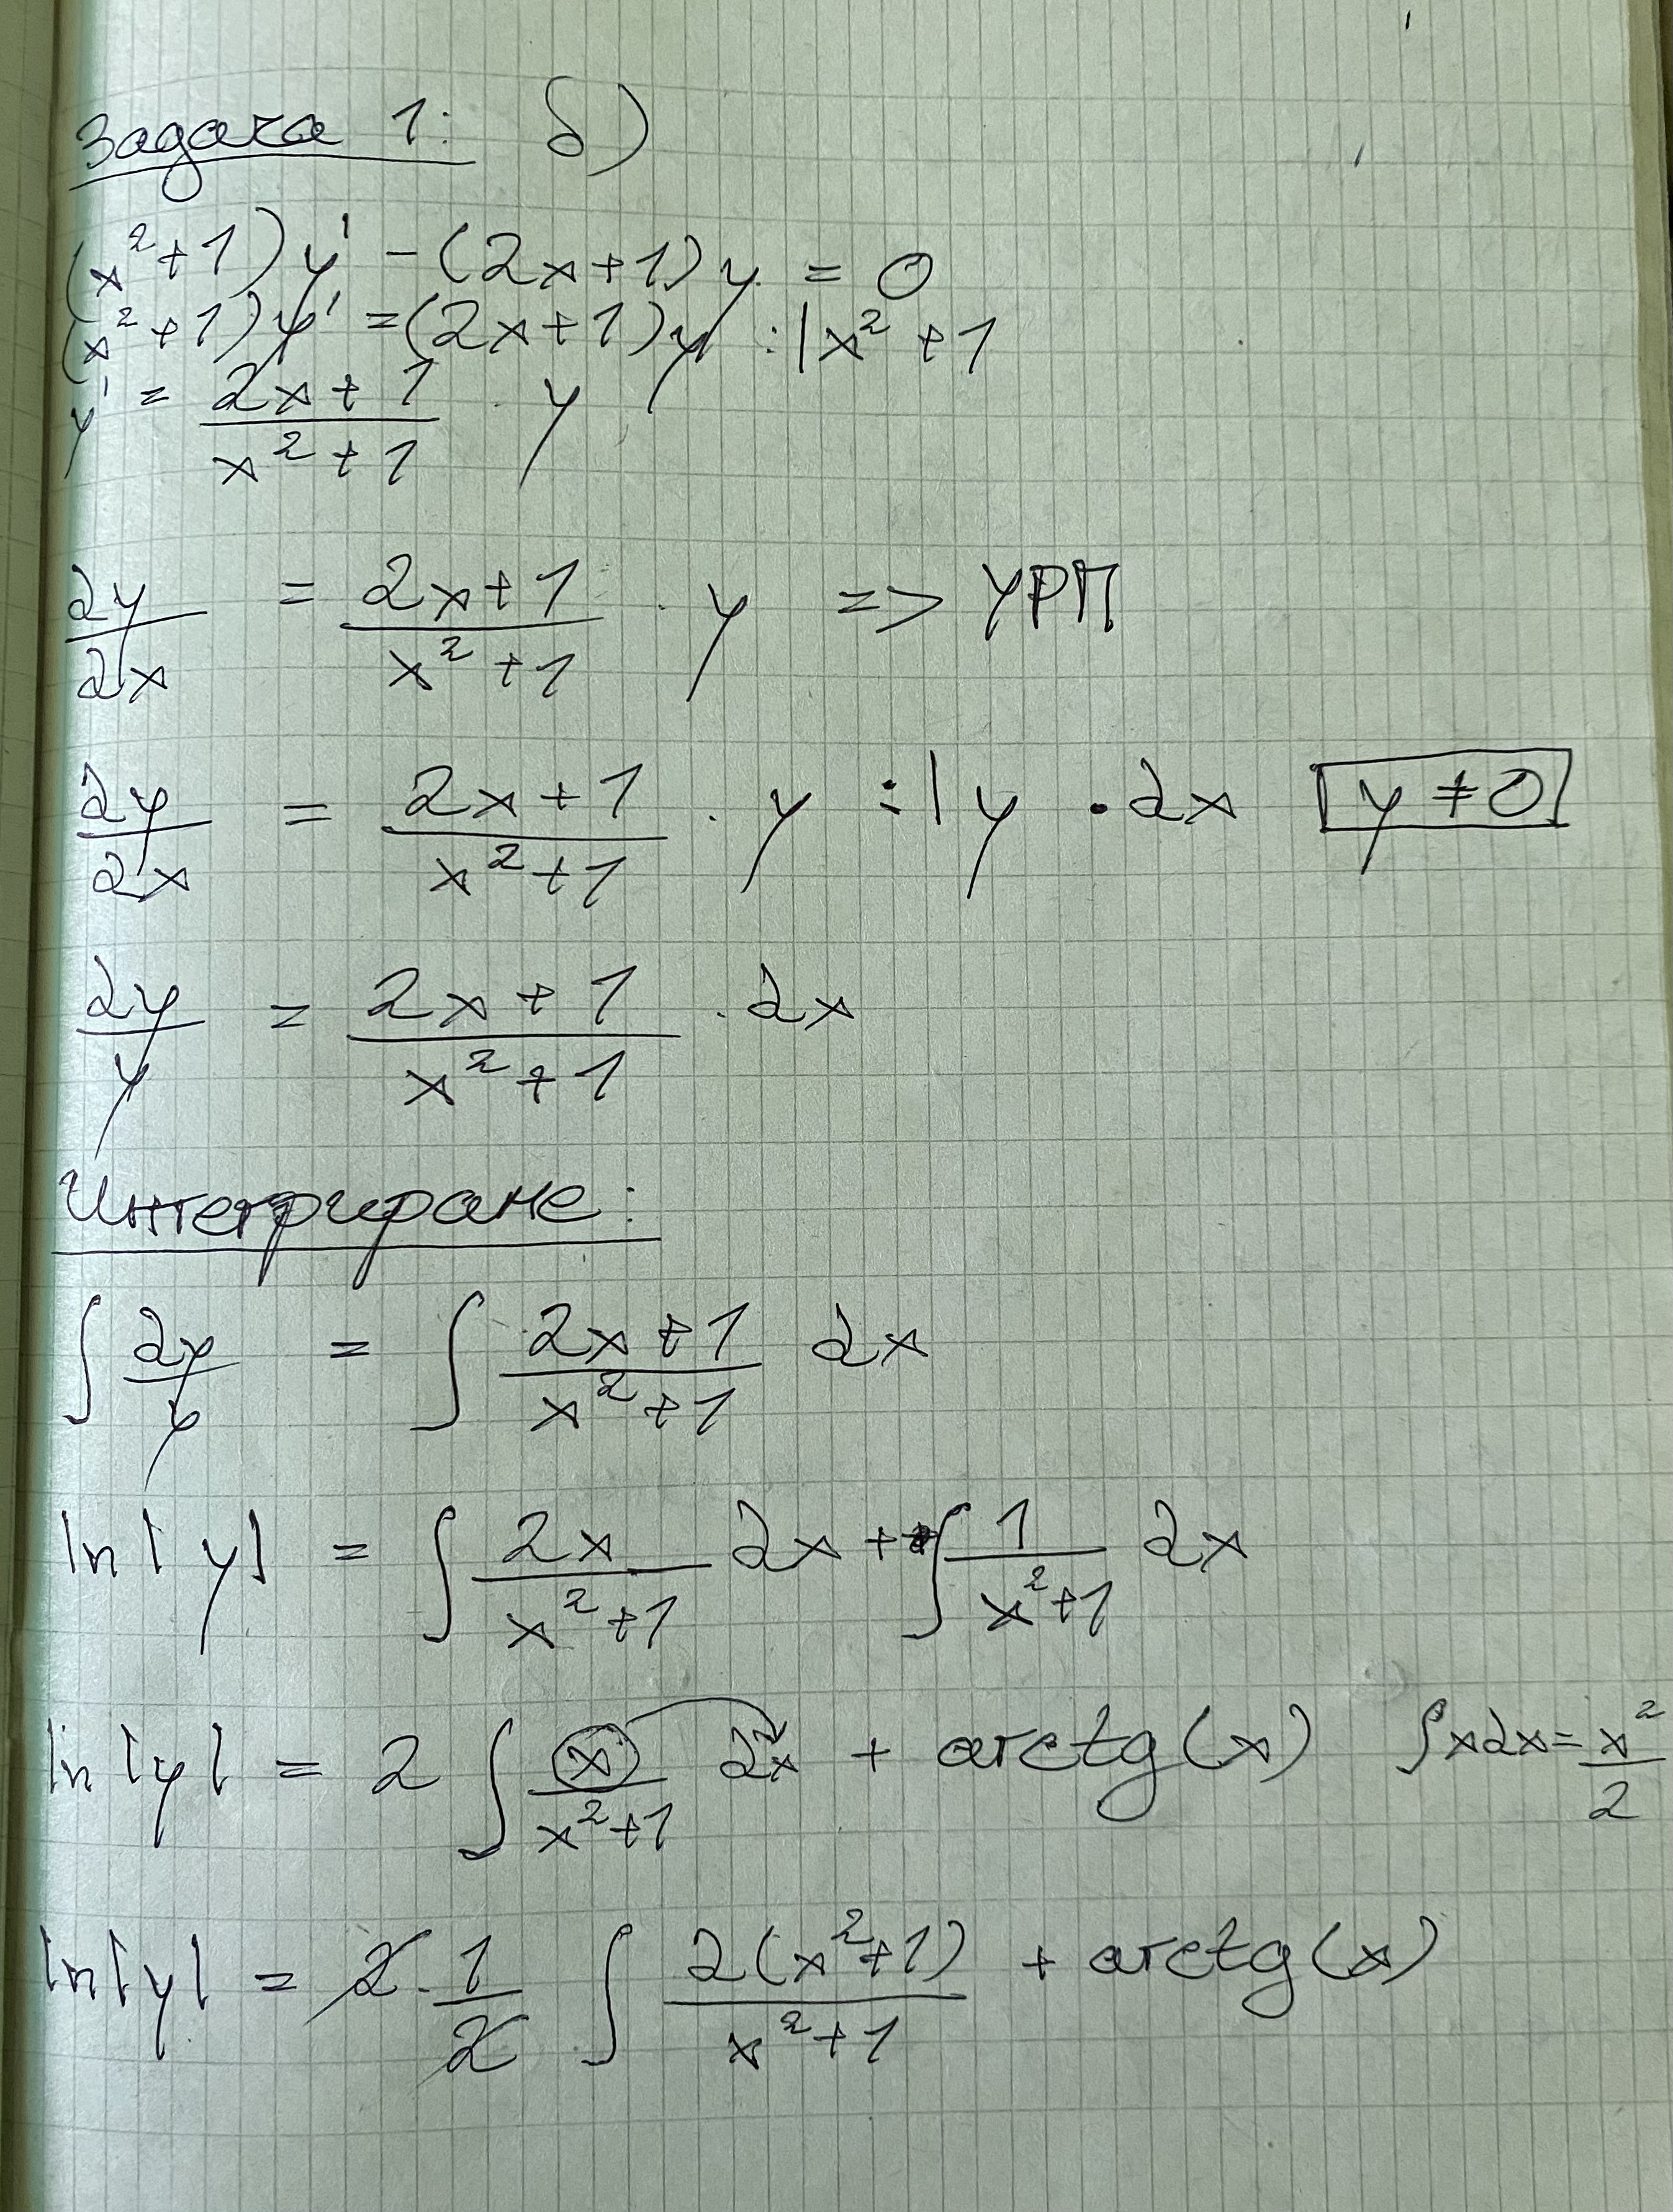 Задача 1: б)
(x²+1)y' - (2x+1)y = 0
(x²+1)y' = (2x+1)y :|x²+1
y' = \frac{2x+1}{x²+1} . y
\frac{dy}{dx} = \frac{2x+1}{x²+1} . y => УРП
\frac{dy}{dx} = \frac{2x+1}{x²+1} . y :| y • dx y ≠ 0
\frac{dy}{y} = \frac{2x+1}{x²+1} . dx
Интегриране:
∫ \frac{dy}{y} = ∫ \frac{2x+1}{x²+1} dx
ln|y| = ∫ \frac{2x}{x²+1} dx + ∫ \frac{1}{x²+1} dx
ln|y| = 2 ∫ \frac{x}{x²+1} dx + arctg(x) ∫xdx = \frac{x²}{2}
ln|y| = 2 . \frac{1}{2} ∫ \frac{d(x²+1)}{x²+1} + arctg(x)